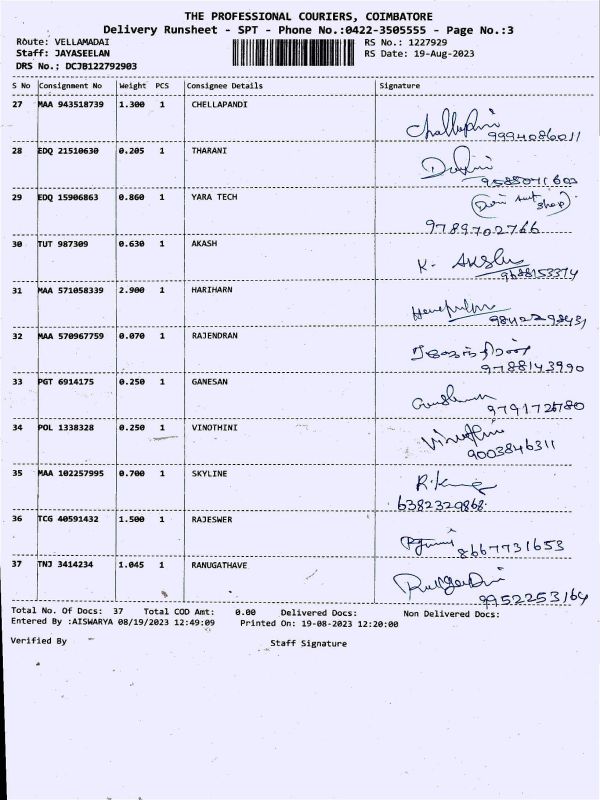 THE PROFESSIONAL COURIERS, COIMBATORE
Delivery Runsheet - SPT - Phone No.:0422-3505555 - Page No.:3
Route: VELLAMADAI RS No.: 1227929
Staff: JAYASEELAN RS Date: 19-Aug-2023
DRS No.: DCJB122792903
S No Consignment No Weight PCS Consignee Details Signature
27 MAA 943518739 1.300 1 CHELLAPANDI
9994086011
28 EDQ 21510630 0.205 1 THARANI
29 EDQ 15906863 0.860 1 YARA TECH
9789702766
30 TUT 987309 0.630 1 AKASH
9688153374
31 MAA 571058339 2.900 1 HARIHARN
9842298431
32 MAA 570967759 0.070 1 RAJENDRAN
9788143990
33 PGT 6914175 0.250 1 GANESAN
34 POL 1338328 0.250 1 VINOTHINI
Vinothini
9003846311
35 MAA 102257995 0.700 1 SKYLINE
6382329868
36 TCG 40591432 1.500 1 RAJESWER
8667731653
37 TNJ 3414234 1.045 1 RANUGATHAVE
9952253164
Total No. Of Docs: 37 Total COD Amt: 0.00 Delivered Docs: Non Delivered Docs:
Entered By :AISWARYA 08/19/2023 12:49:09 Printed On: 19-08-2023 12:20:00
Verified By Staff Signature